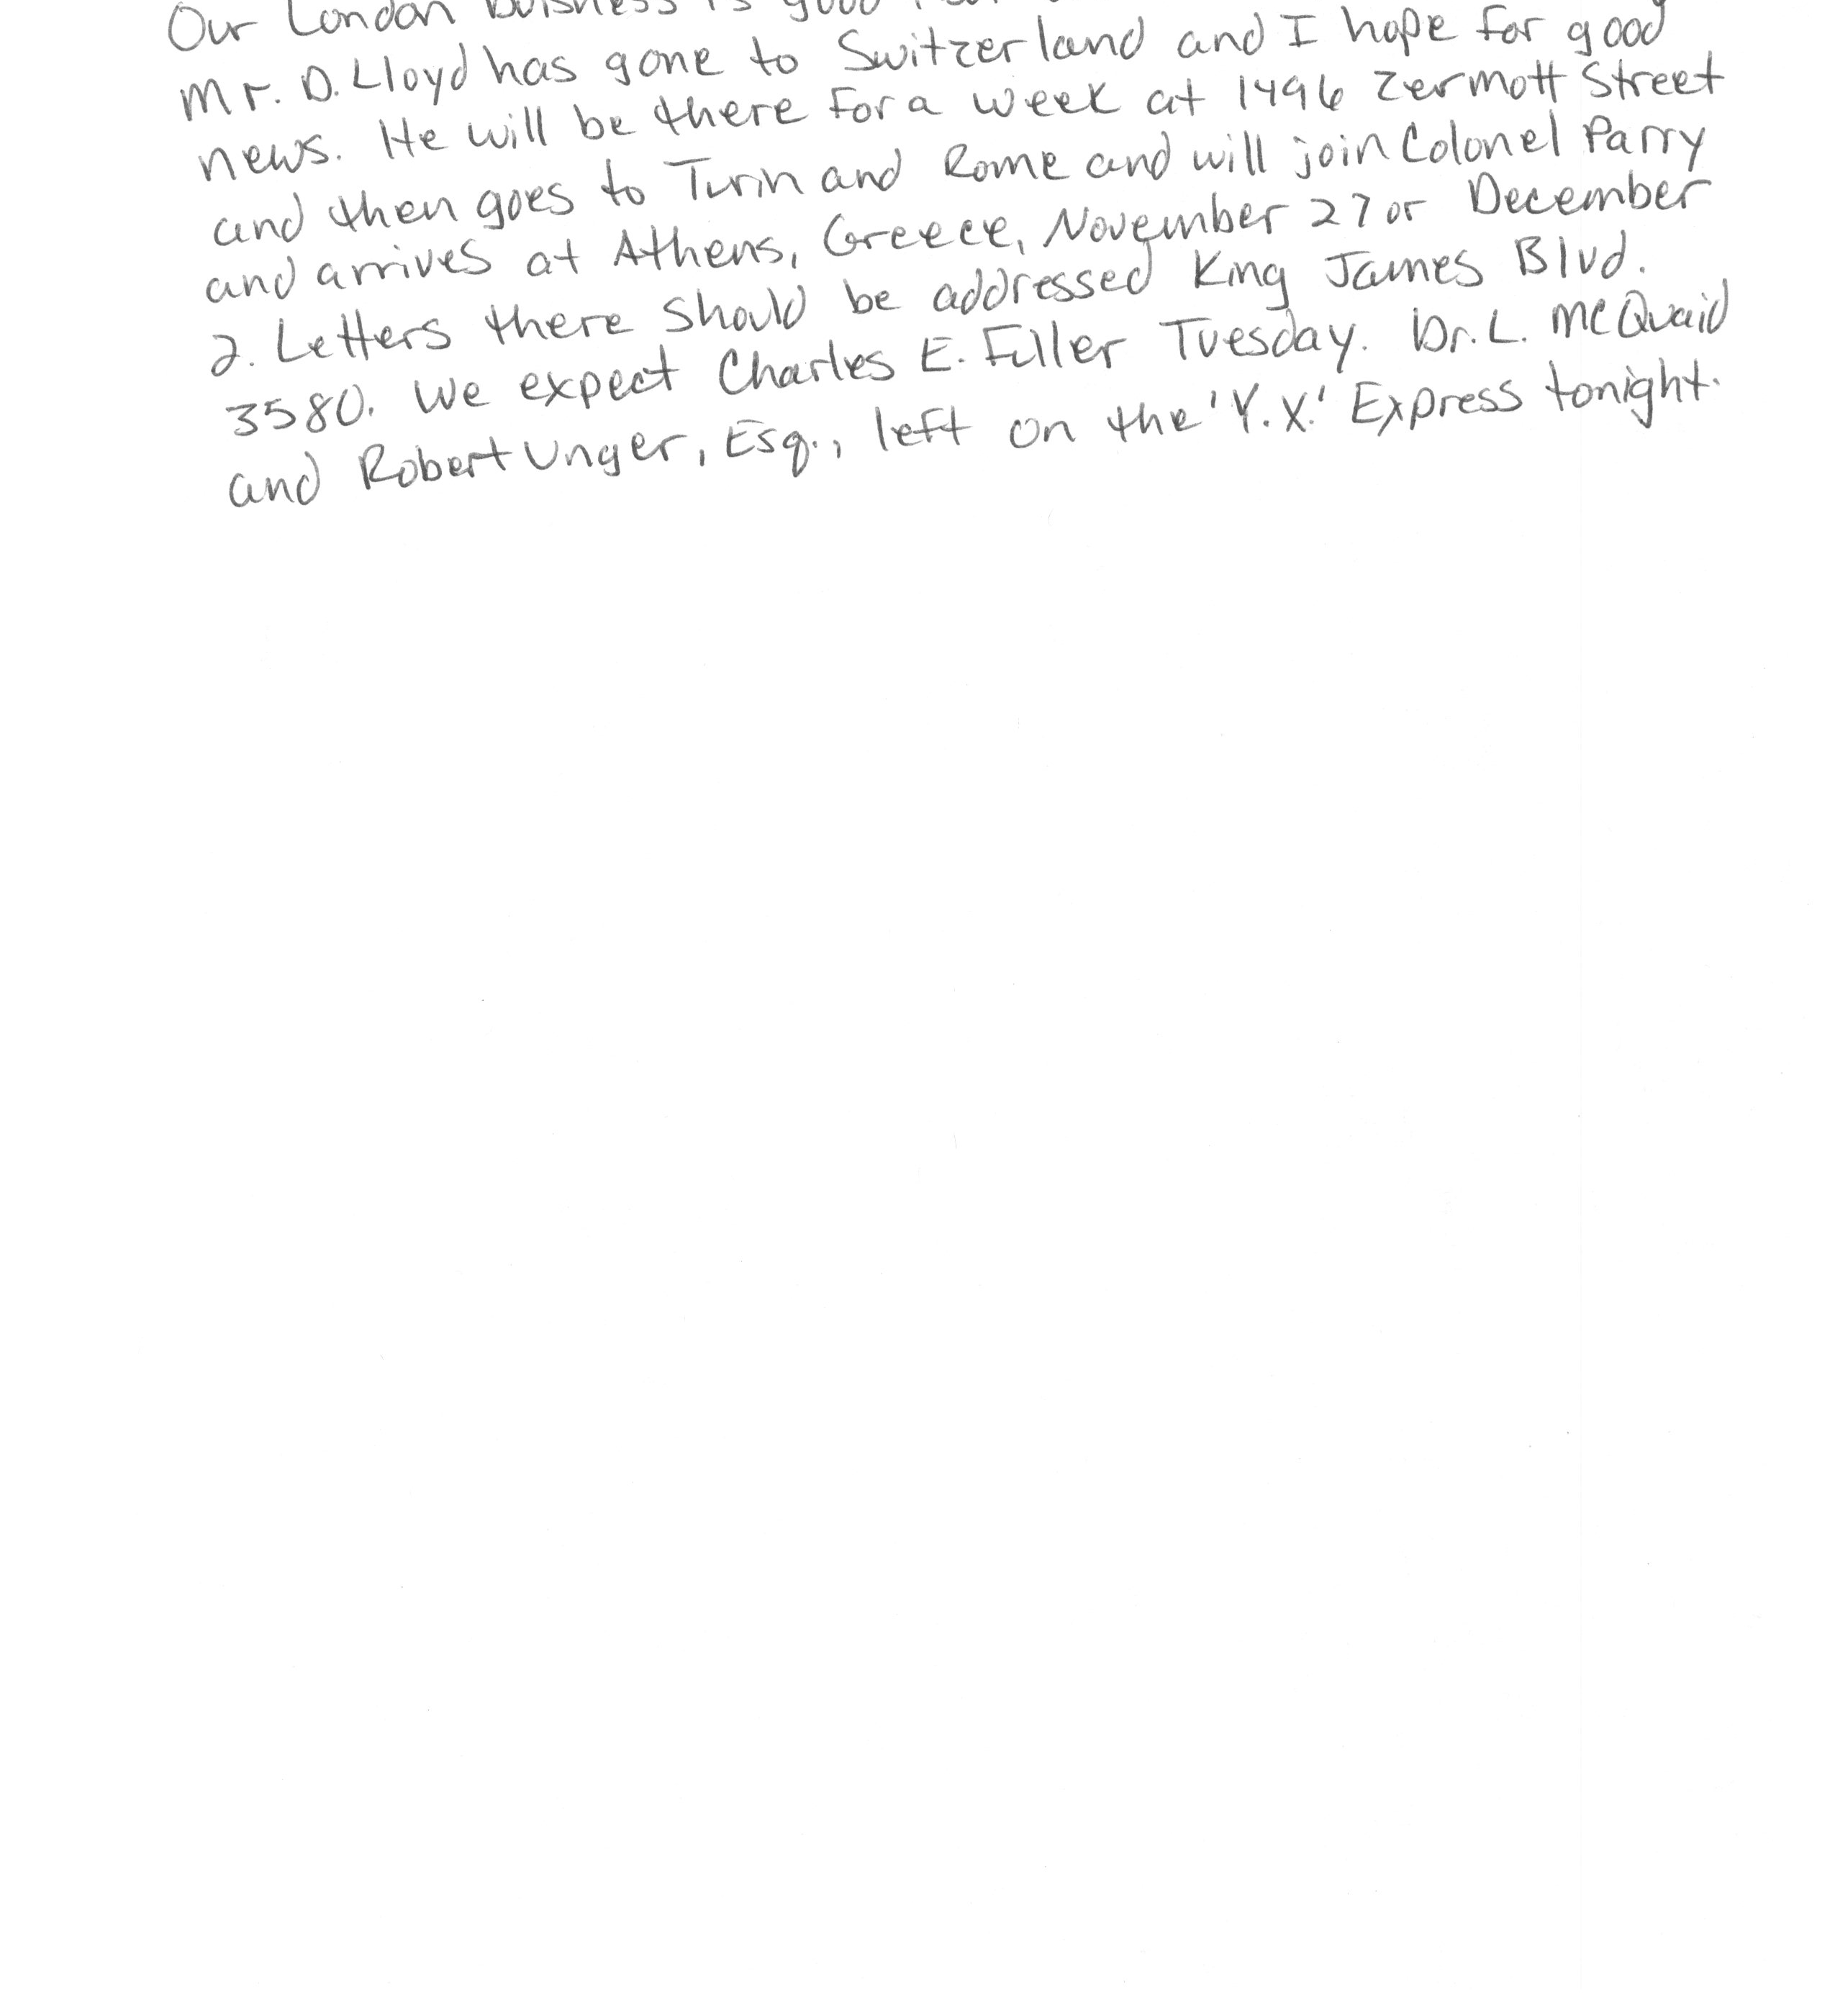 Our London buisness is good
Mr. D. Lloyd has gone to Switzerland and I hope for good
news. He will be there for a week at 1496 Zermott Street
and then goes to Turin and Rome and will join Colonel Parry
and arrives at Athens, Greece, November 27 or December
2. Letters there should be addressed King James Blvd.
3580. We expect Charles E. Fuller Tuesday. Dr. L. McQuaid
and Robert Unger, Esq., left on the 'Y.X.' Express tonight.